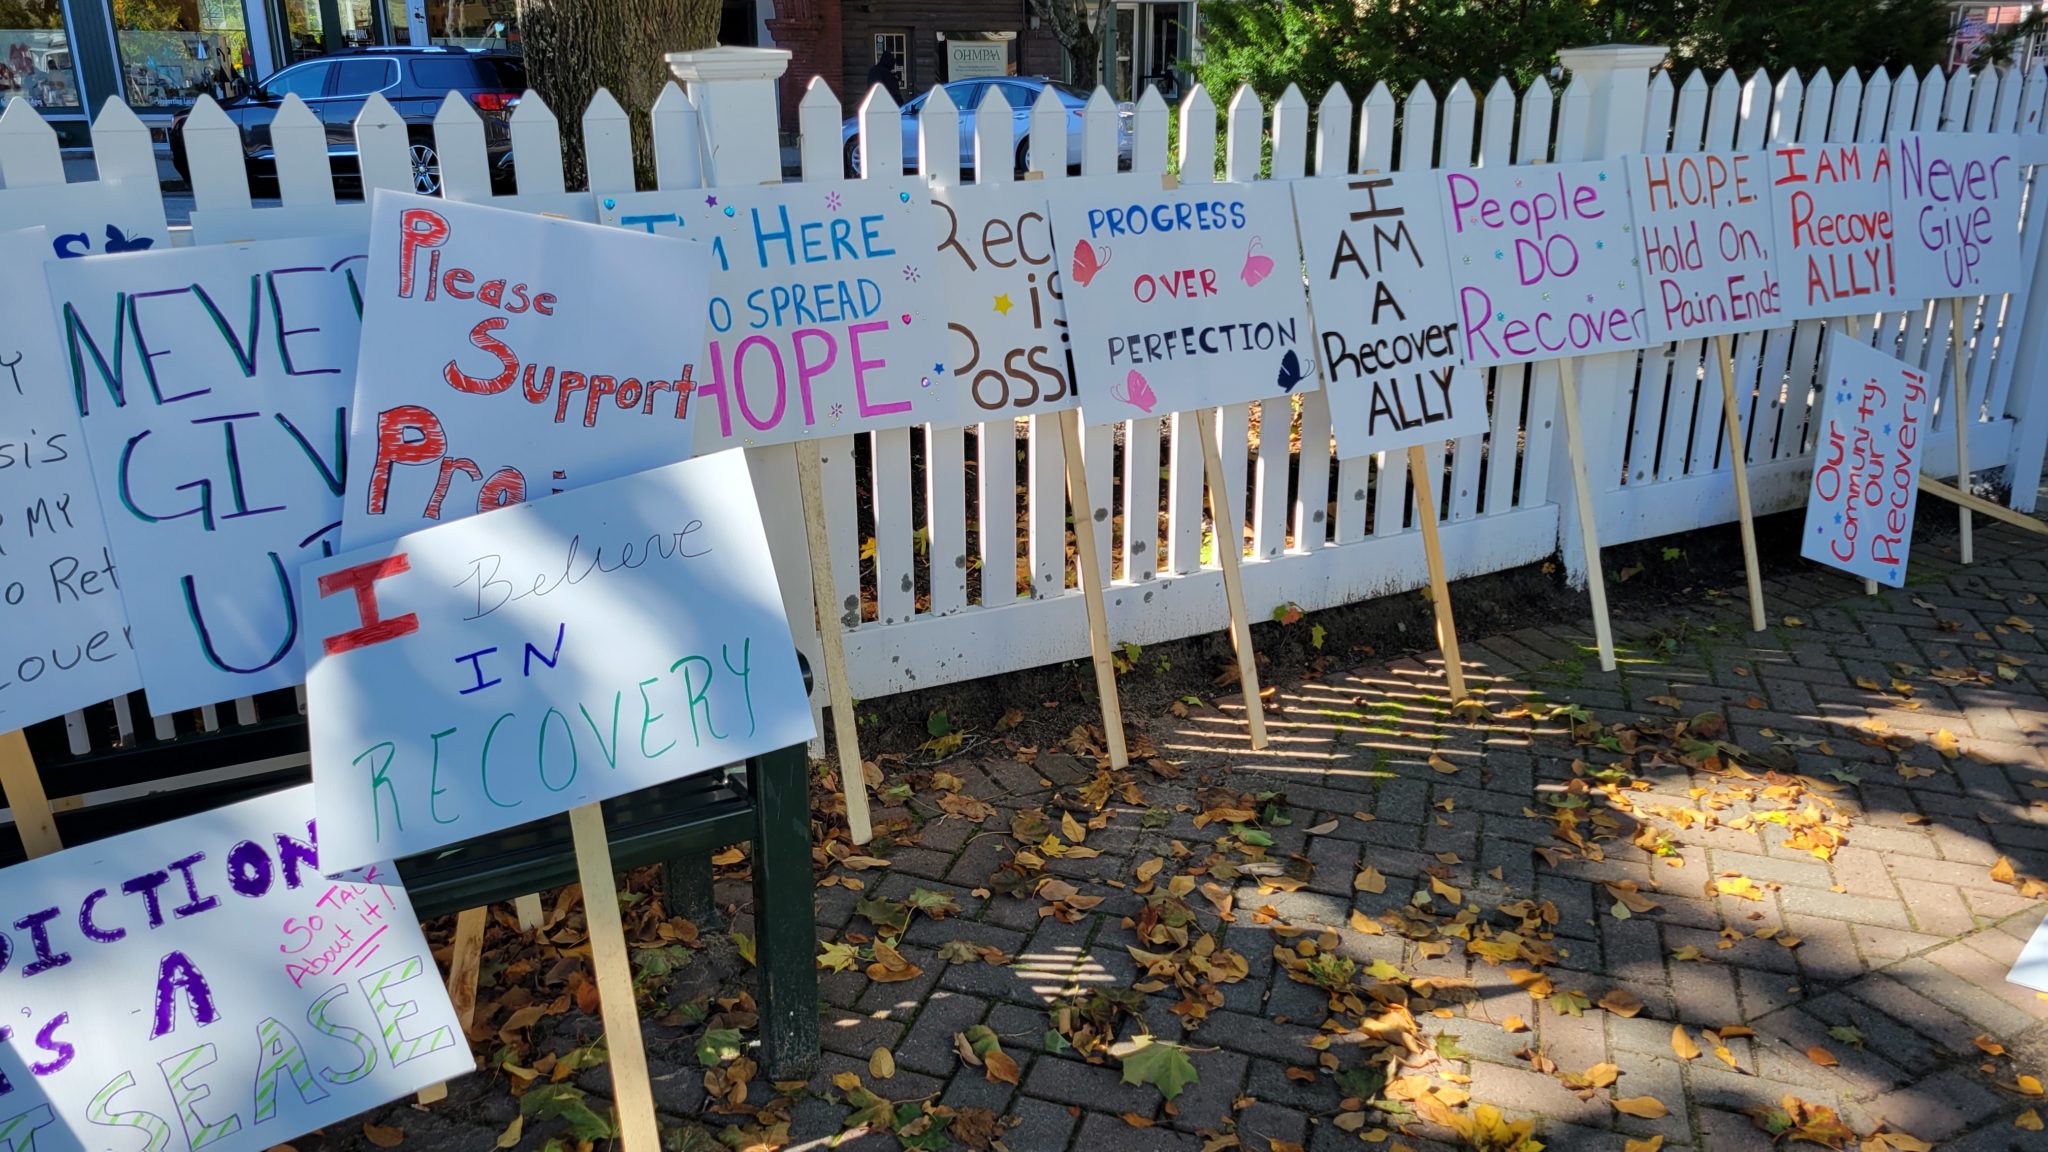 OHMPAA
NEVER
GIV
U
Please
Support
I'M HERE
TO SPREAD
HOPE
Rec
is
Possi
PROGRESS
OVER
PERFECTION
I
AM
A
Recovery
ALLY
People
DO
Recover
H.O.P.E.
Hold On,
Pain Ends
I AM A
Recove
ALLY!
Never
Give
UP.
Our
Community,
Our
Recovery!
MY
o Ret
I Believe
IN
RECOVERY
DICTION
So TALK
About it!
'S A
SEASE